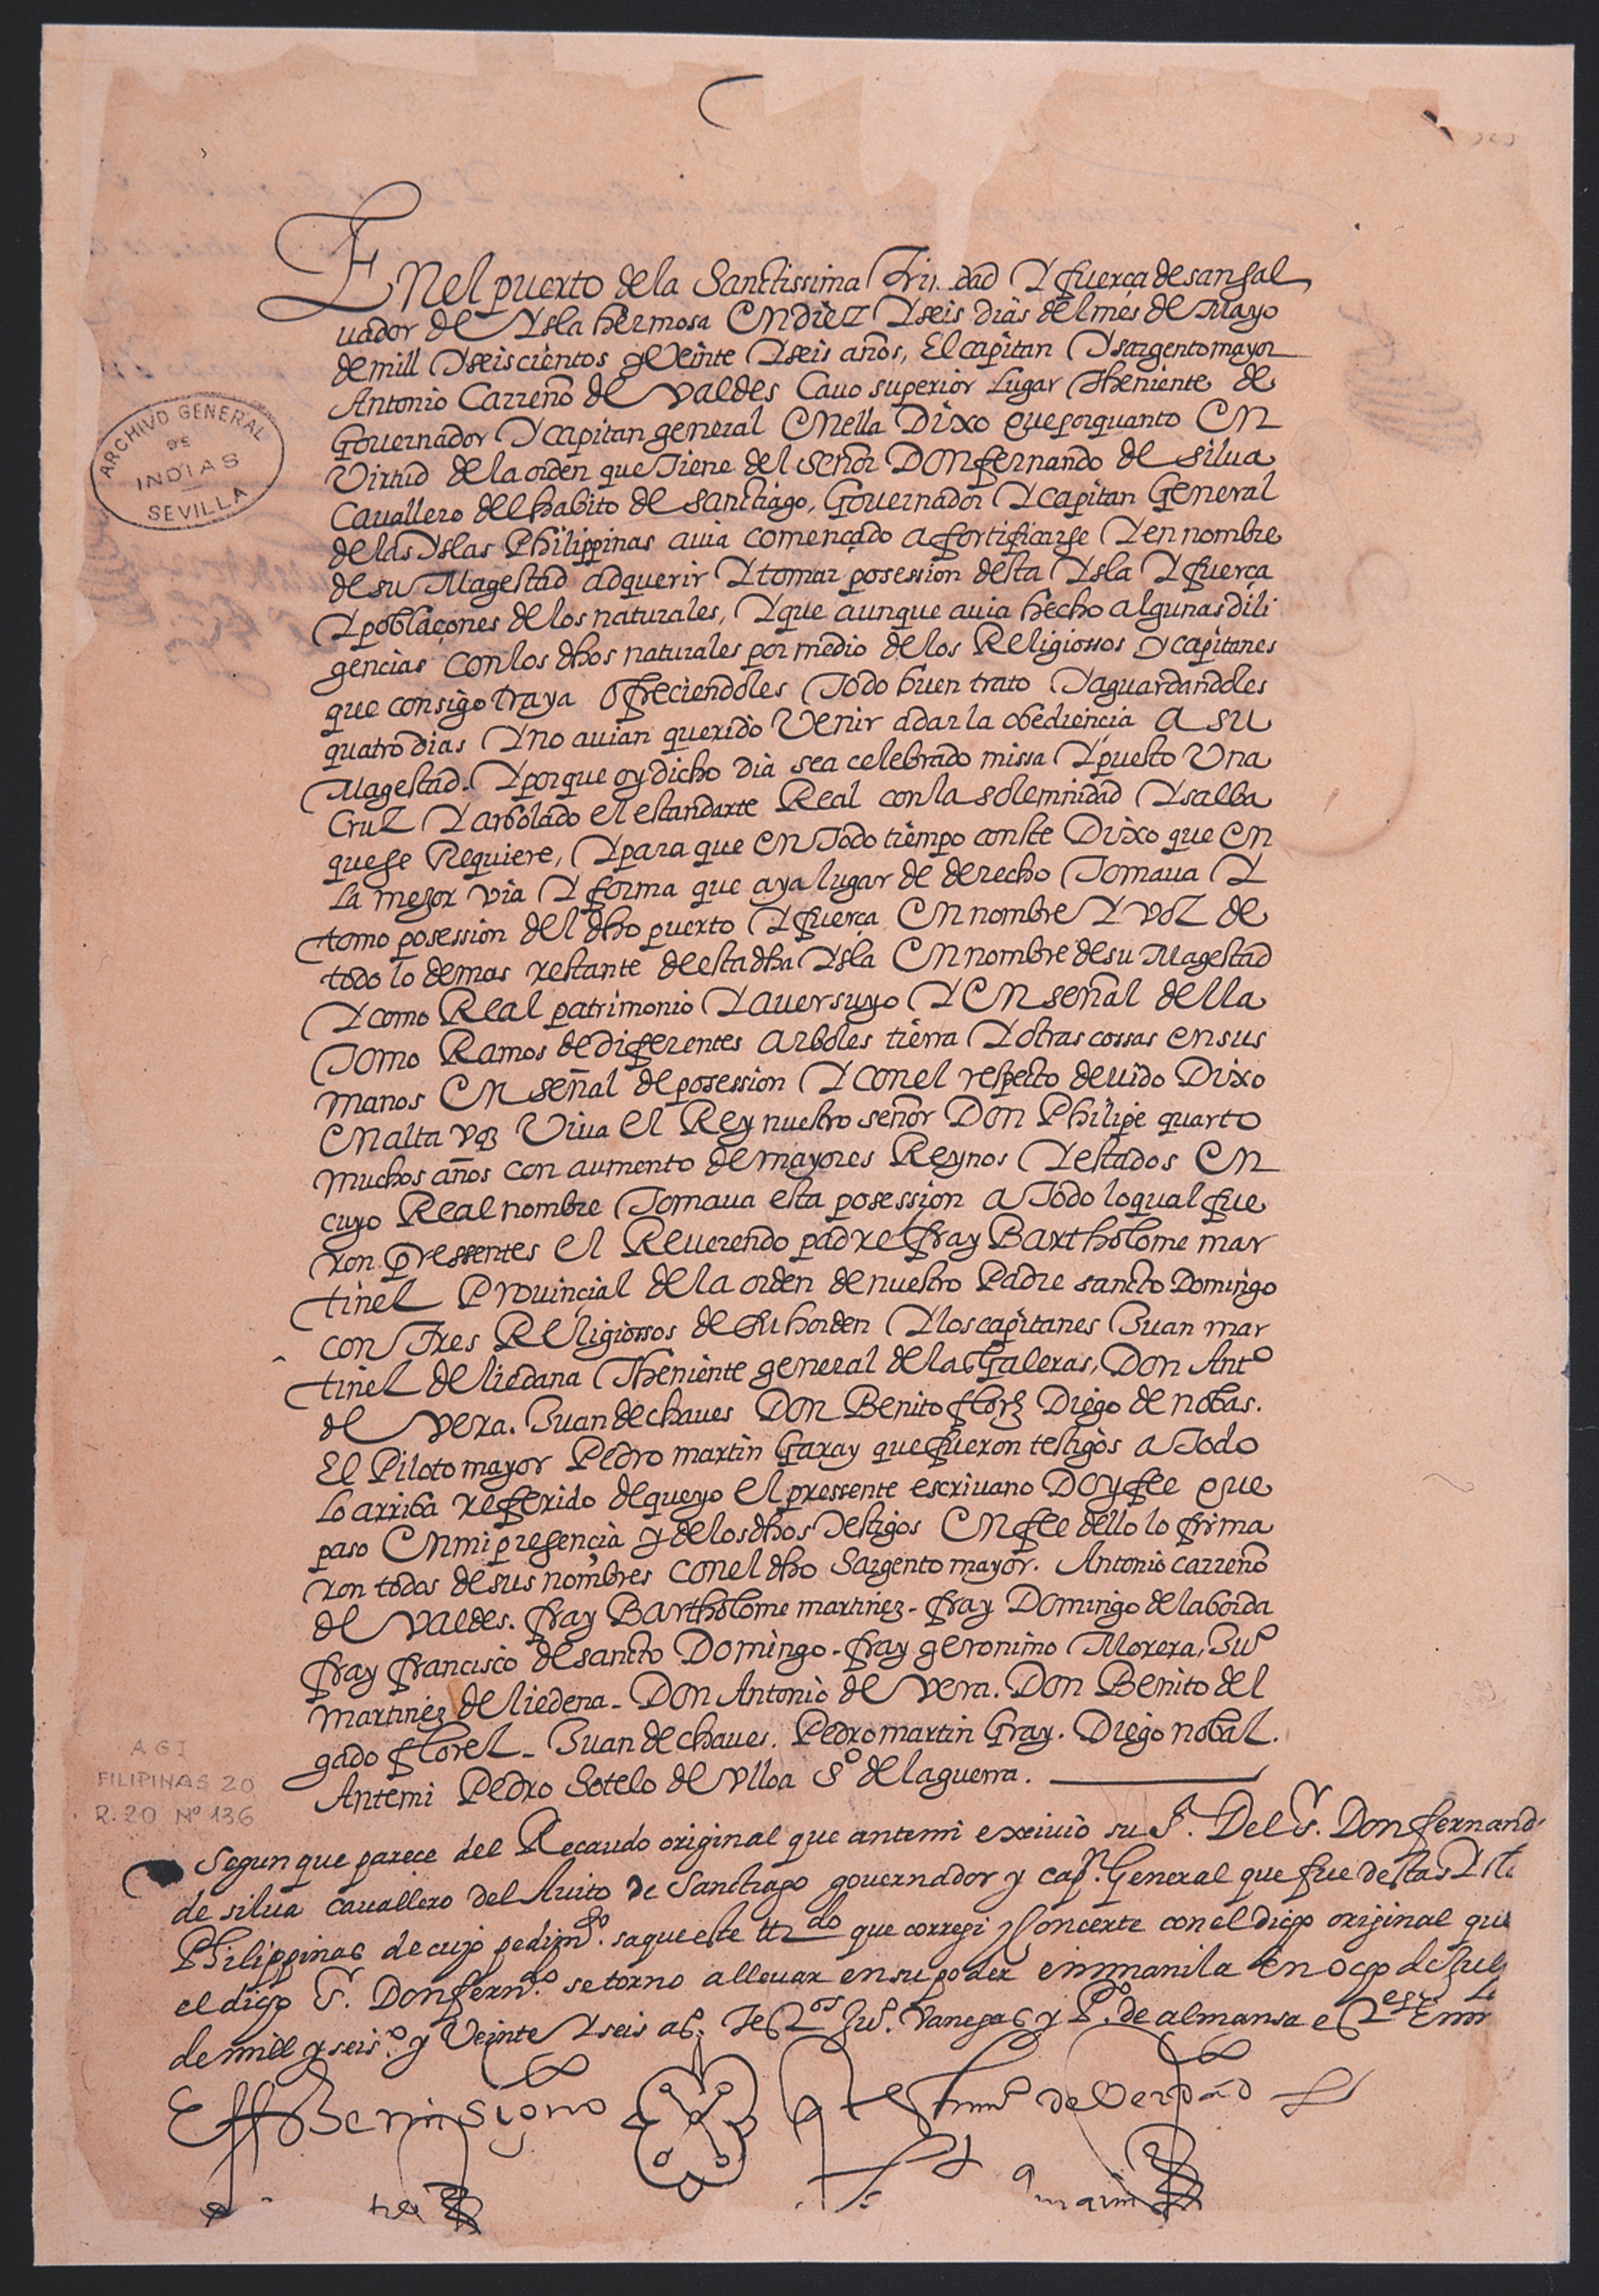 En el puerto de la Sanctissima Trinidad Y fuerça de san sal
uador de Ysla hermosa En diez Y seis dias del mes de Mayo
de mill Y seis cientos y Veinte Y seis años, El capitan Y sargento mayor
Antonio Carreño de Valdes Cauo superior Lugar Theniente de
Gouernador Y capitan general En ella Dixo que por quanto En
Virtud de la orden que Tiene del señor Don fernando de silua
Cauallero del habito de sanctiago, Gouernador Y capitan General
de las Yslas Philippinas auia comencado a fortificarse Y en nombre
de su Magestad adquerir Y tomar posession desta Ysla Y fuerça
Y poblaçones de los naturales, Y que aunque auia hecho algunas dili
gencias con los dhos naturales por medio de los Religiossos Y capitanes
que consigo traya ofreciendoles Todo buen trato Y aguardandoles
quatro dias Y no auian querido Venir a dar la obediencia a su
Magestad. Y porque oy dicho dia sea celebrado missa Y puesto Una
Cruz Y arbolado el estandarte Real con la solemnidad Y salba
que se Requiere, Y para que En Todo tiempo conste Dixo que En
La mejor via Y forma que aya lugar de derecho Tomaua Y
tomo posession del dho puerto Y fuerça En nombre Y voz de
todo lo demas restante de esta dha Ysla En nombre de su Magestad
Y como Real patrimonio Y auer suyo Y En señal della
Tomo Ramos de diferentes arboles tierra Y otras cossas en sus
manos En señal de posession Y con el respecto deuido Dixo
En alta voz Viua el Rey nuestro señor Don Philipe quarto
muchos años con aumento de mayores Reynos Y estados En
cuyo Real nombre Tomaua esta posession a Todo lo qual fue
ron pressentes el Reuerendo padre fray Bartholome mar
tinez Prouincial de la orden de nuestro Padre sancto Domingo
con Tres Religiossos de su horden Y los capitanes Juan mar
tinez de liedana Theniente general de las Galeras, Don Antº
de Vera. Juan de chaues Don Benito florz Diego de nobas.
El Piloto mayor Pedro martin Garay que fueron testigos a Todo
Lo arriba referido de que yo el pressente escriuano Doy fee que
paso En mi presençia y de los dhos Testigos En fee dello lo firma
ron todos de sus nombres con el dho Sargento mayor. Antonio carreño
de Valdes. fray Bartholome martinez - fray Domingo de la borda
fray francisco de sancto Domingo - fray geronimo Morera, Juº
martinez de liedena - Don Antonio de Vera. Don Benito del
gado florez - Juan de chaues. Pedro martin Gray. Diego nobal.
Ante mi Pedro Sotelo de Vlloa Sº de la guerra.
Segun que parece del Recaudo original que ante mi exiuio su Sª. Del Sr. Don fernand
de silua cauallero del Auito de Sanctiago gouernador y capn. General que fue destas Ysla
Philippinas de cuyo pedimtº. saque este trdo que corregi y Concerte con el dicho original que
el dicho Sr. Don ferndo. se torno a lleuar en su poder en manila En ocho de Jul
de mill y seisº. y Veinte Y seis as. Juº. Vanegas y Pº. de almansa
mi signo de Verdad
ARCHIVO GENERAL
DE
INDIAS
SEVILLA
AGI
FILIPINAS 20
R. 20 Nº 136